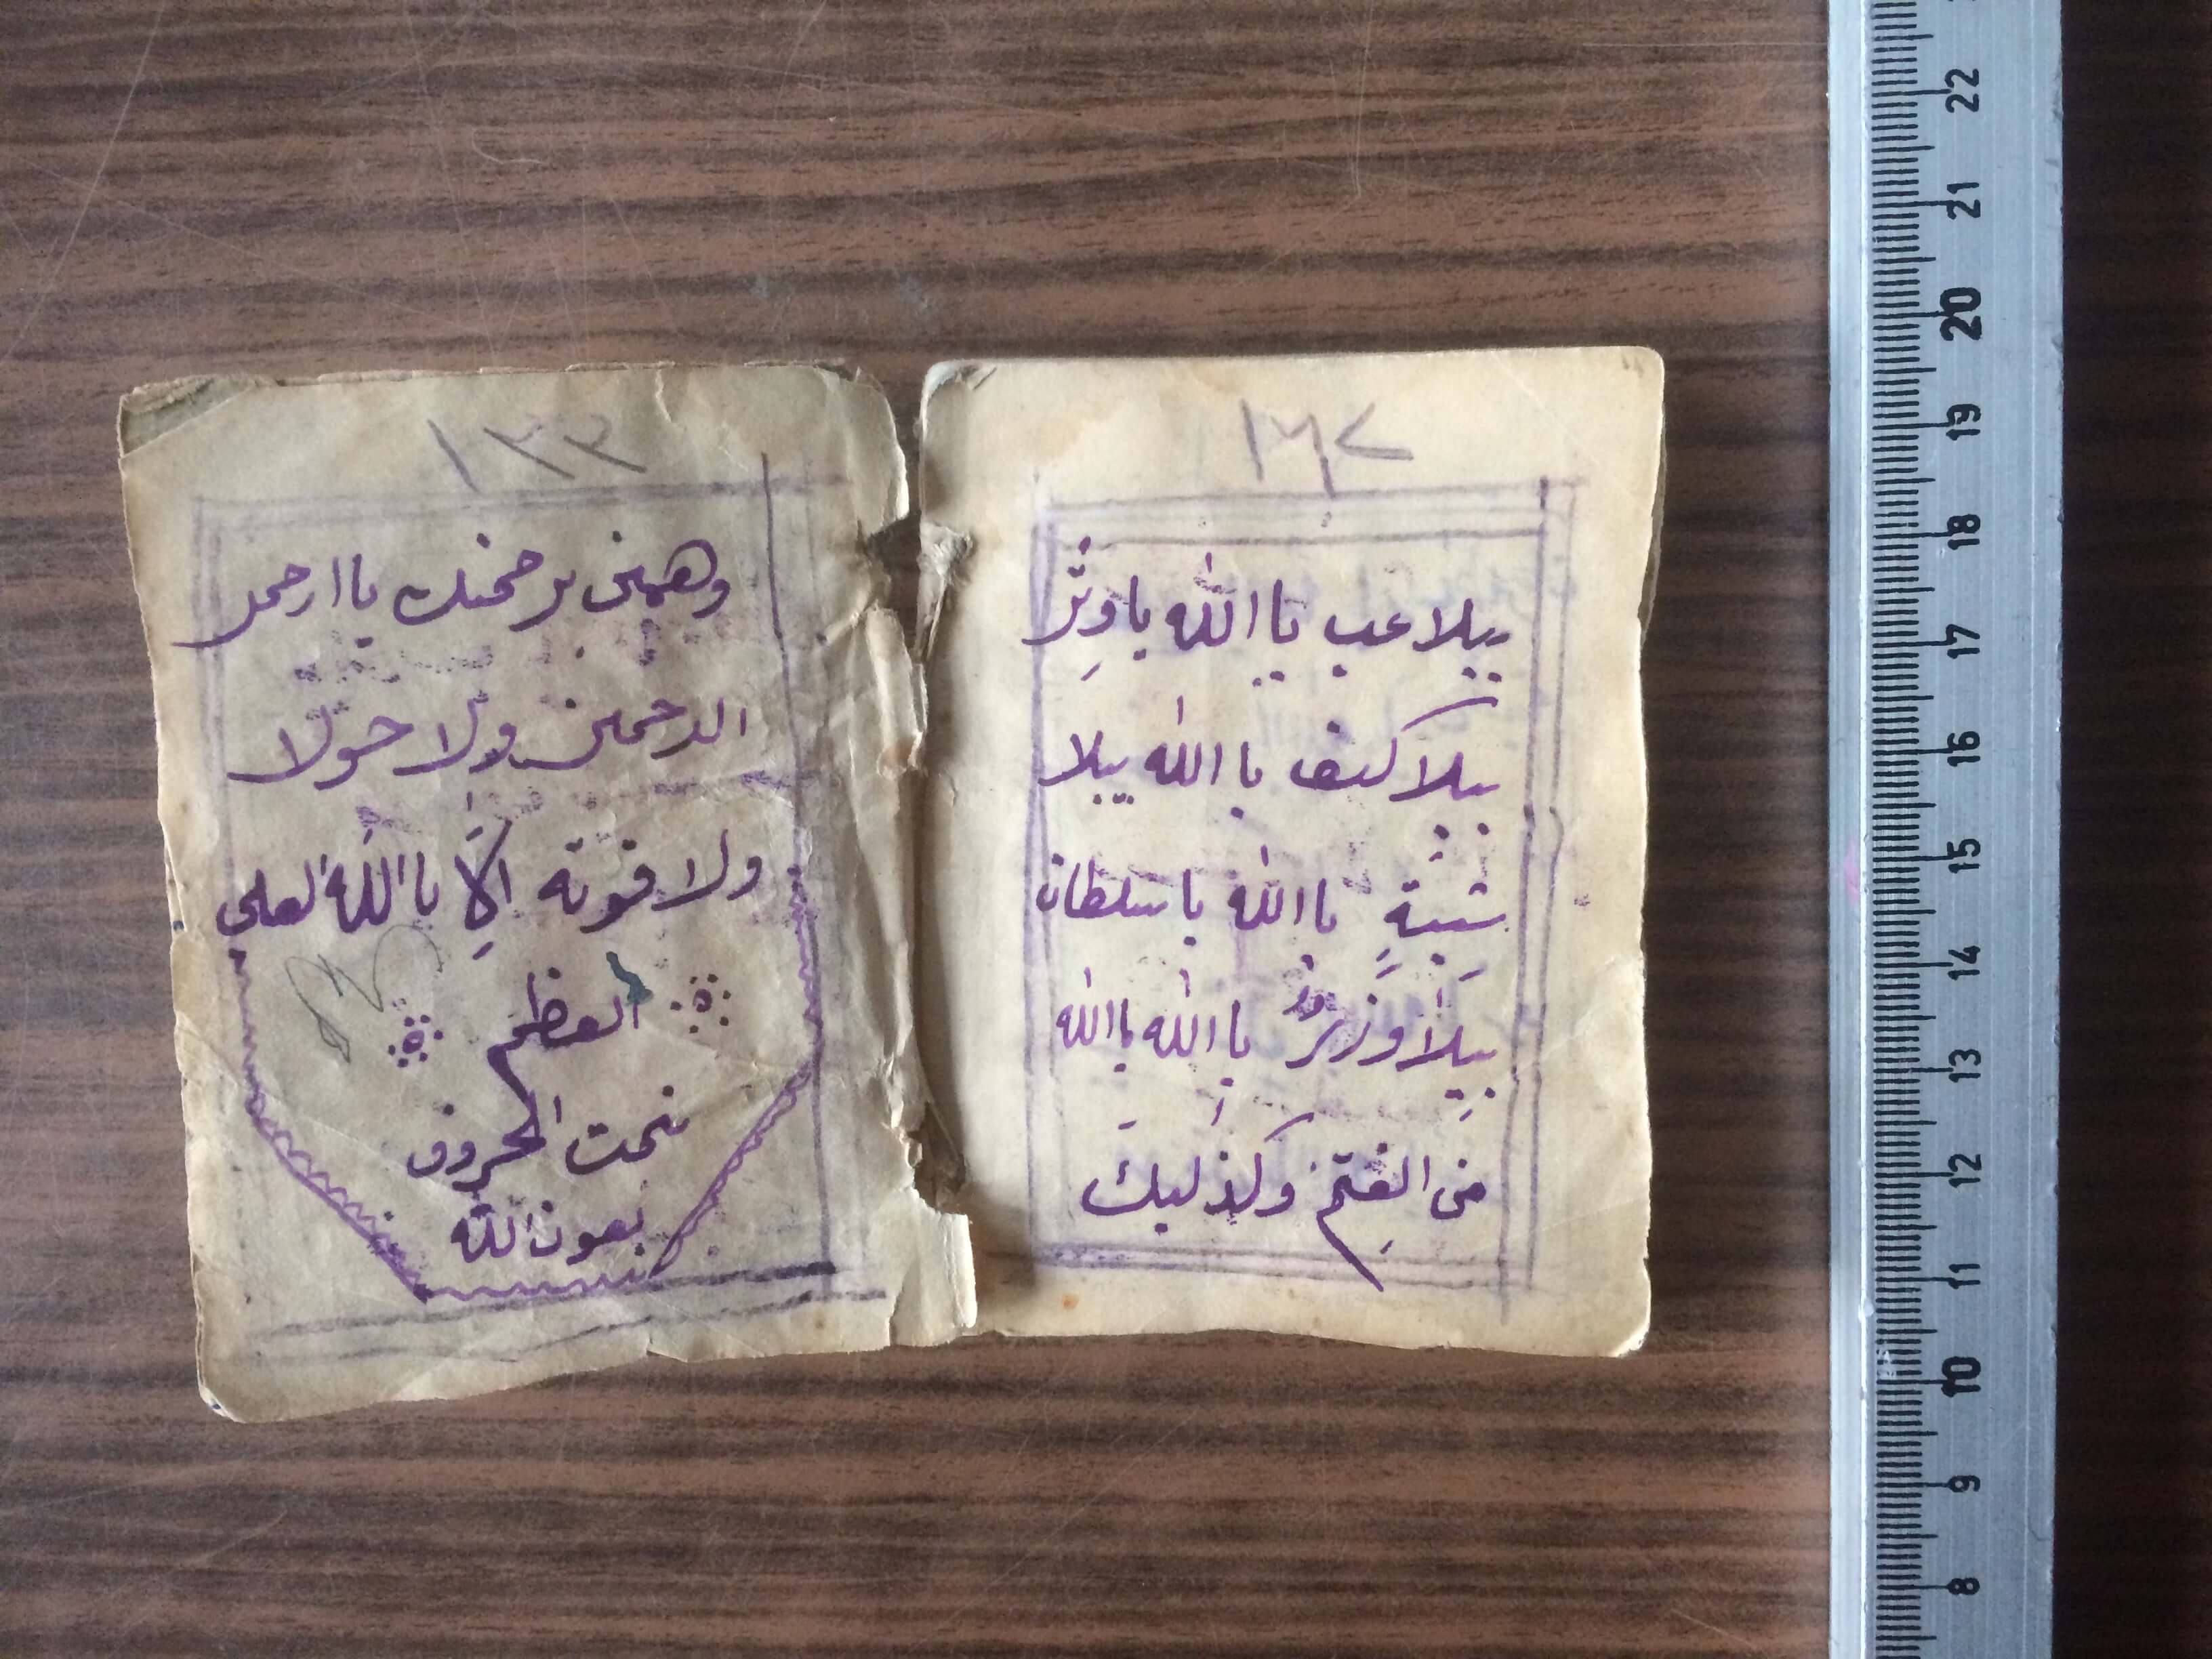 ١٢٢
ببلا عيب يا الله يا وتر
ببلا كيف يا الله ببلا
شبيه يا الله يا سلطان
ببلا وزير يا الله يا الله
من الغم وكذلك
١٢٣
وهمنى برحمتك يا ارحمر
الرحمين ولا حولا
ولا قوته الا باالله العلى
العظم
تمت الحروف
بعون الله
22
21
20
19
18
17
16
15
14
13
12
11
10
9
8